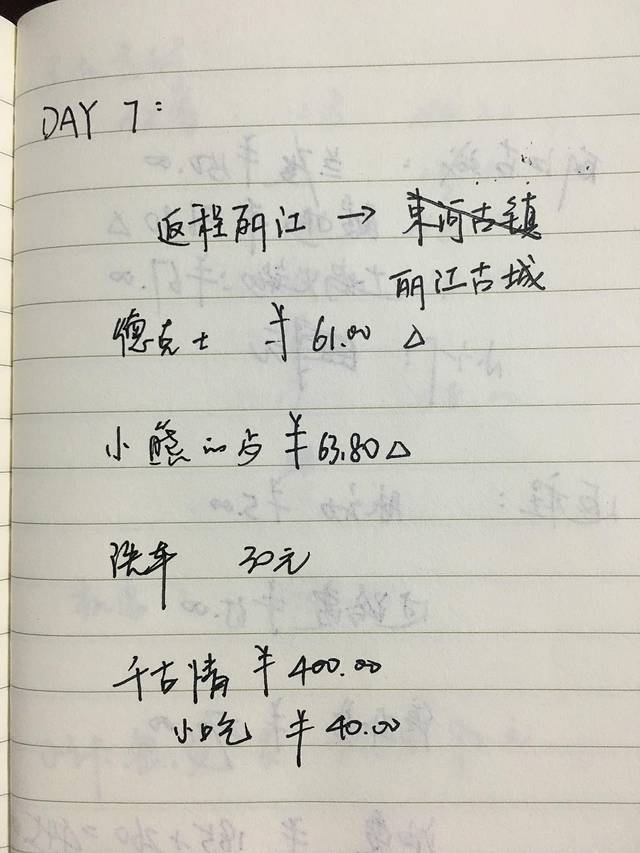 DAY 7:
返程丽江 → 束河古镇
丽江古城
德克士 ¥61.00 △
小熊 ¥63.80 △
洗车 30元
千古情 ¥400.00
小吃 ¥40.00